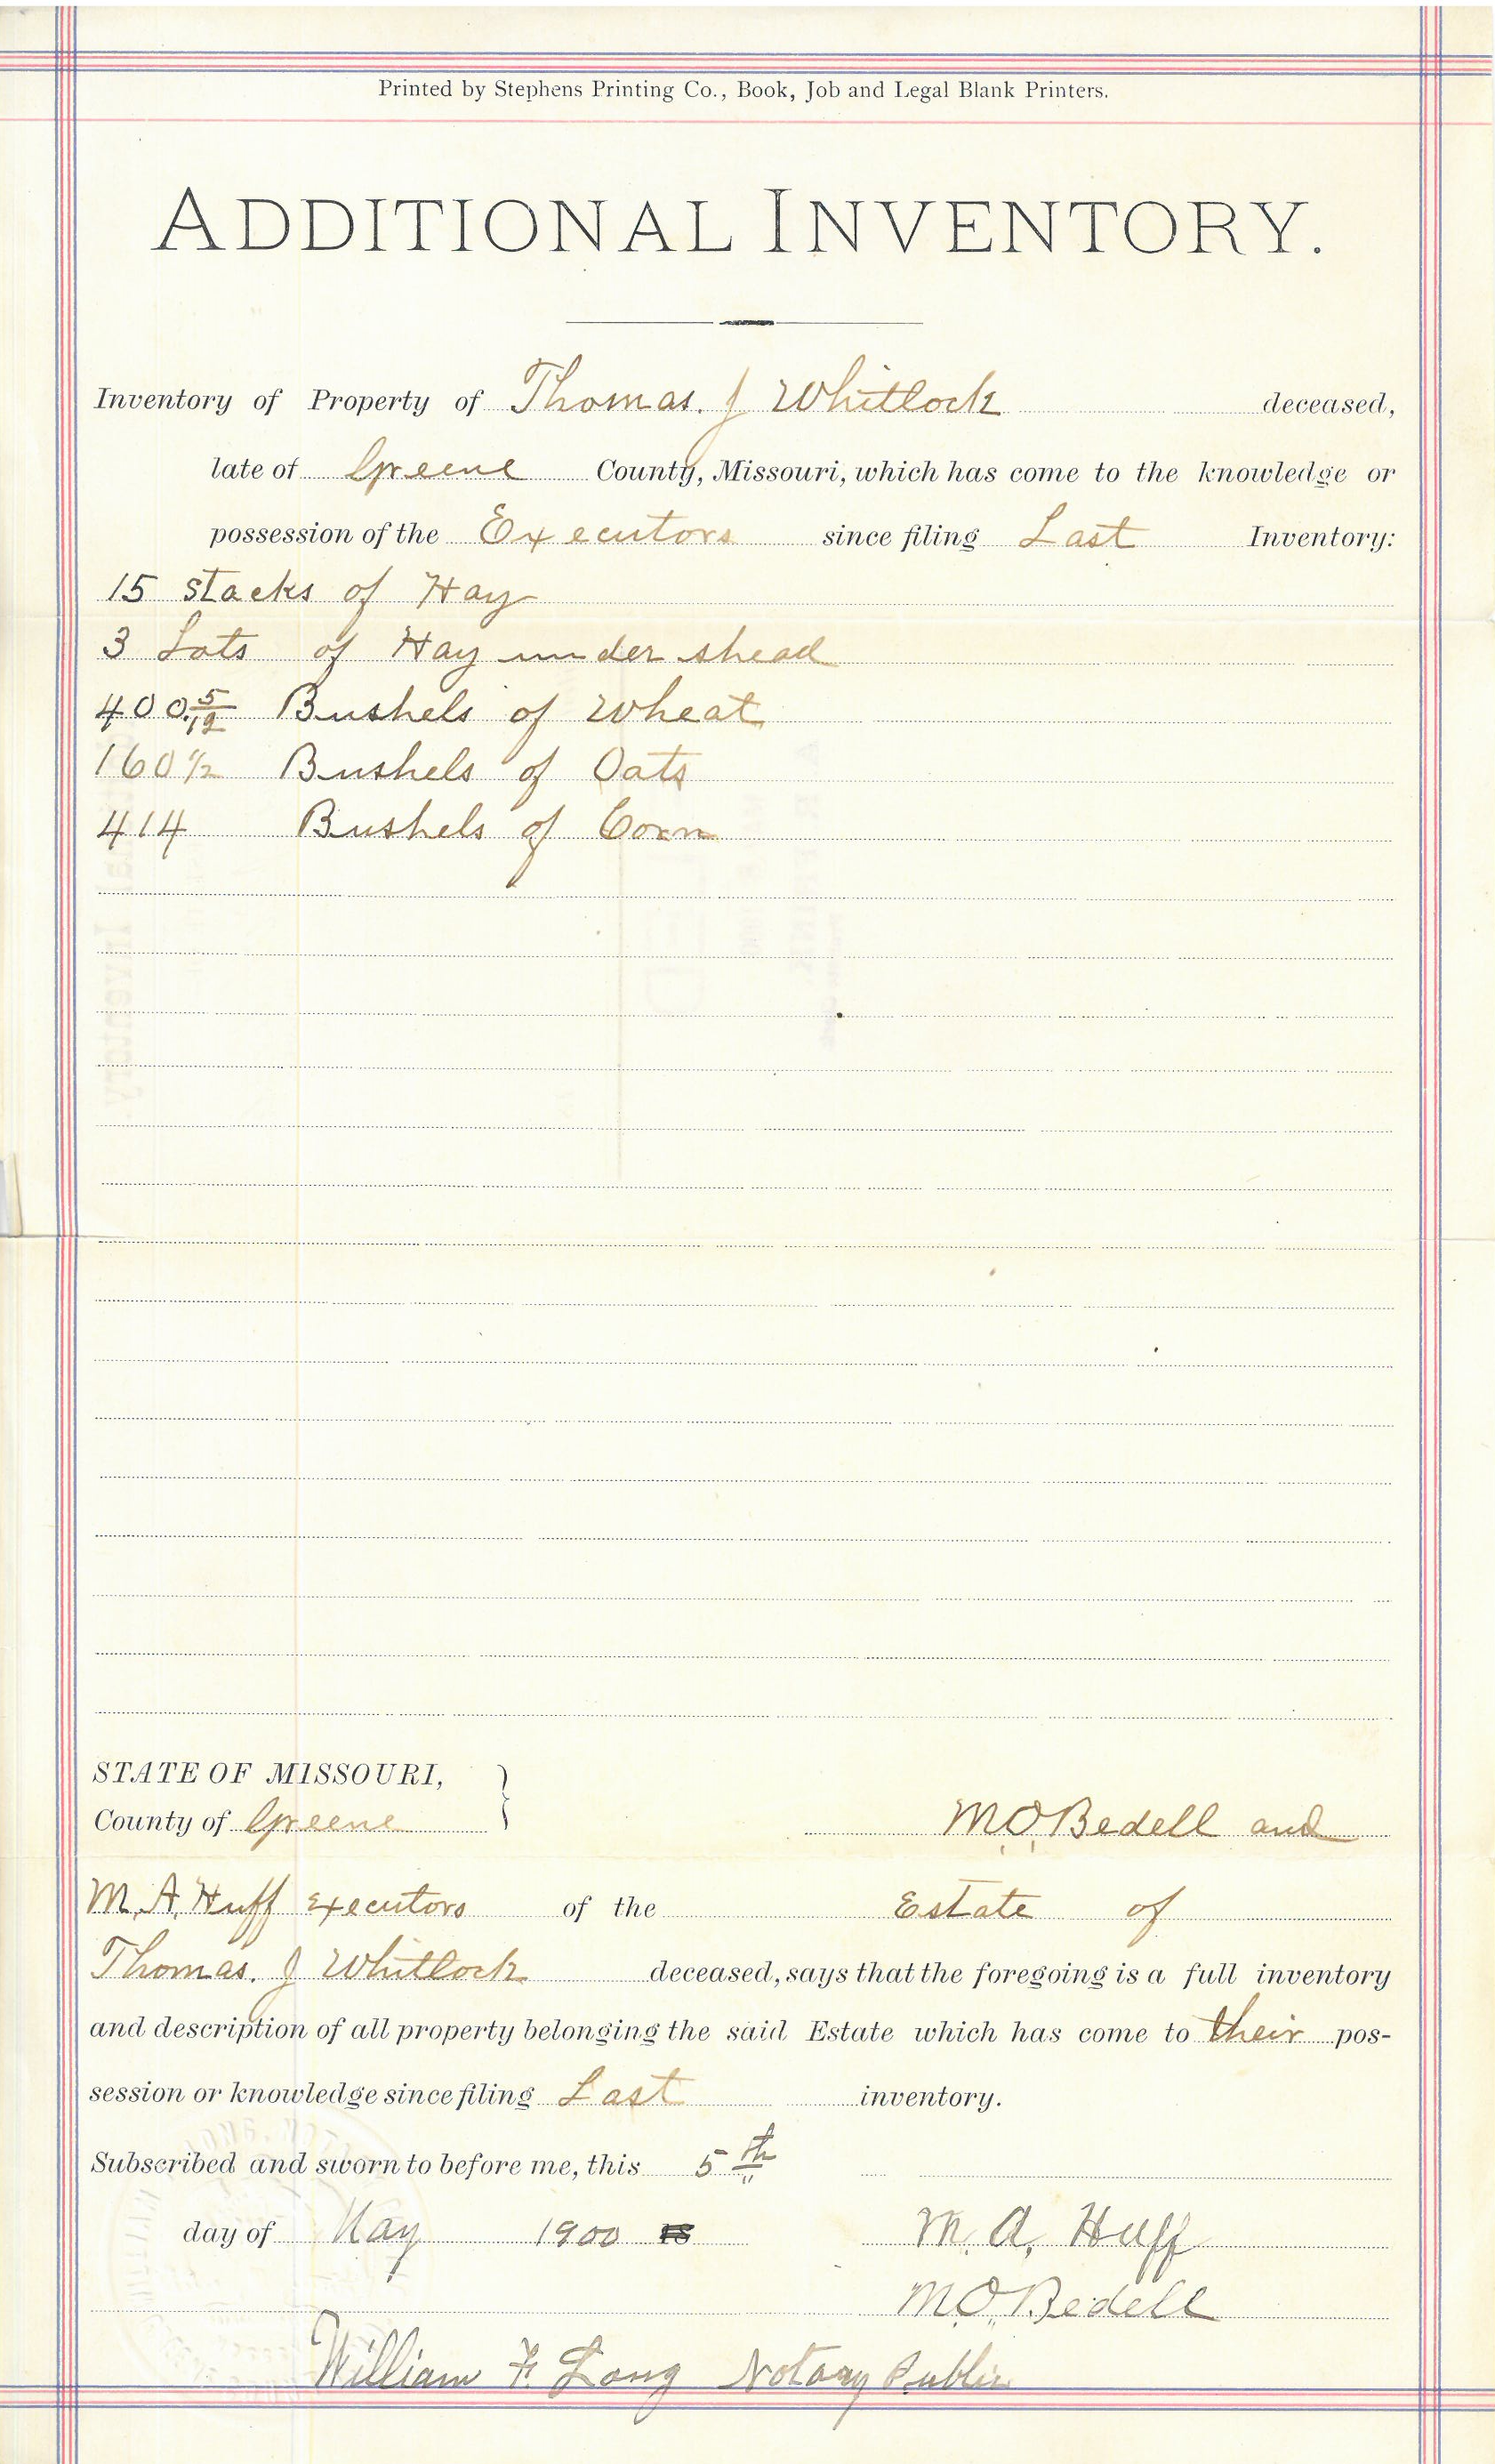 Printed by Stephens Printing Co., Book, Job and Legal Blank Printers.
ADDITIONAL INVENTORY.
Inventory of Property of Thomas. J Whitlock deceased,
late of Greene County, Missouri, which has come to the knowledge or
possession of the Executors since filing Last Inventory:
15 stacks of Hay
3 Lots of Hay under shead
400 5/12 Bushels of Wheat
160 1/2 Bushels of Oats
414 Bushels of Corn
STATE OF MISSOURI,
County of Greene } M.O. Bedell and
M. A. Huff executors of the Estate of
Thomas. J Whitlock deceased, says that the foregoing is a full inventory
and description of all property belonging the said Estate which has come to their pos-
session or knowledge since filing Last inventory.
Subscribed and sworn to before me, this 5th
day of May 1900 M. A. Huff
M.O. Bedell
William F. Long Notary Public